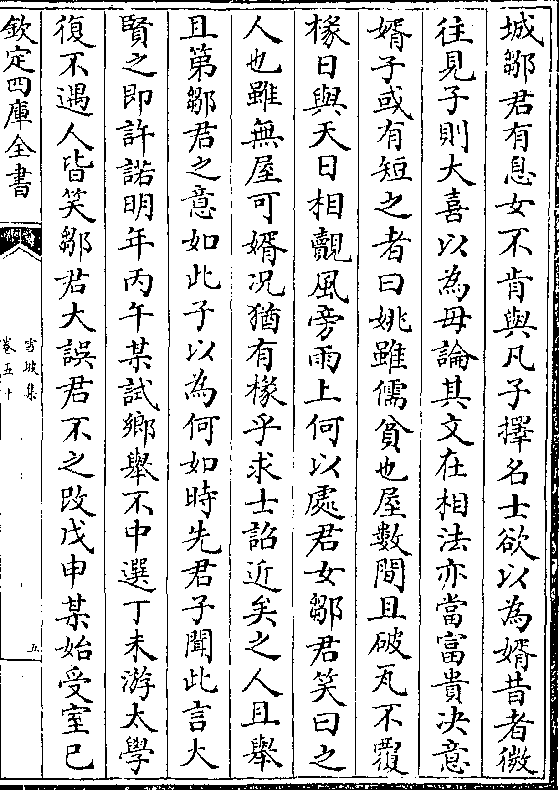 城鄒君有息女不肯與凡子擇名士欲以為婿昔者微
往見子則大喜以為毋論其文在相法亦當富貴决意
婿子或有短之者曰姚雖儒貧也屋數間且破瓦不覆
椽日與天日相覿風旁雨上何以處君女鄒君笑曰之
人也雖無屋可婿况猶有椽乎求士詔近矣之人且舉
且第鄒君之意如此子以為何如時先君子聞此言大
賢之即許諾明年丙午某試鄉舉不中選丁未游太學
復不遇人皆笑鄒君大誤君不之改戊申某始受室已
欽定四庫全書
雪坡集
卷五十
五